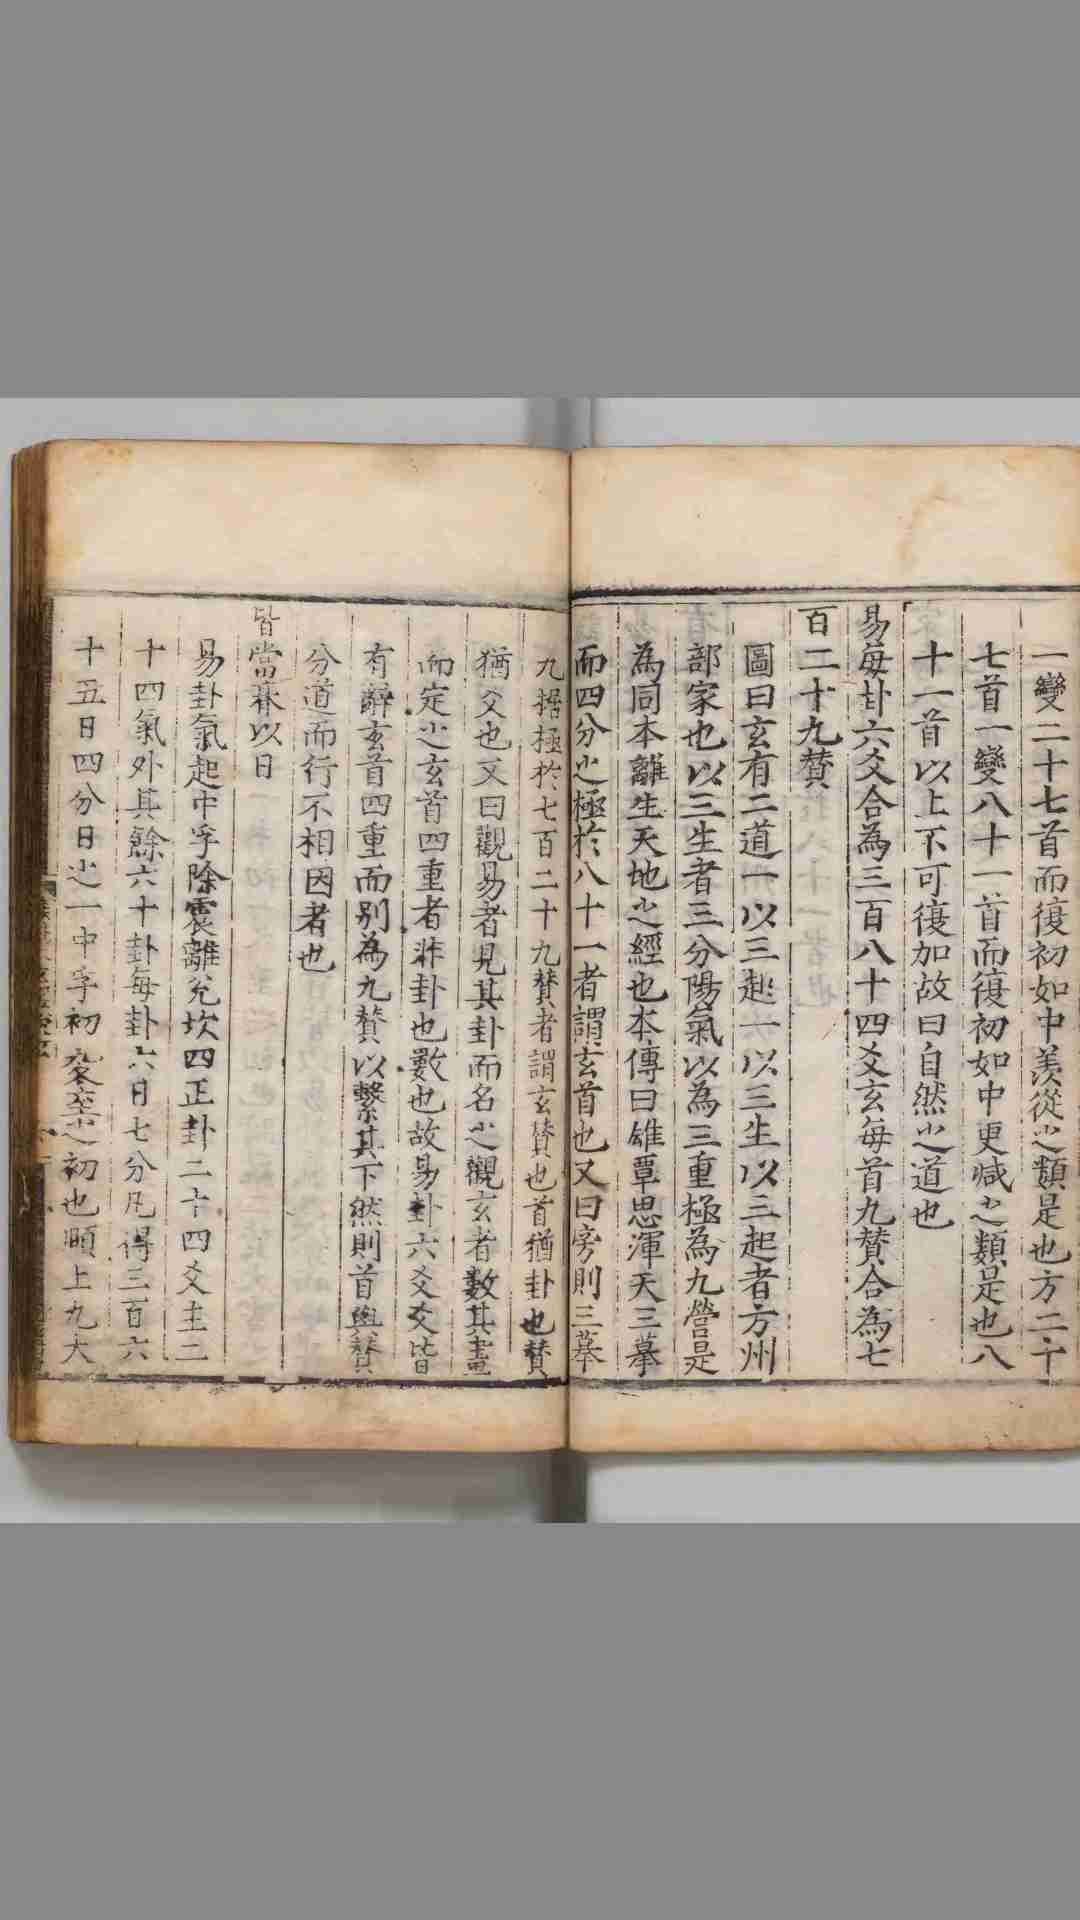 一變二十七首而復初如中羨從之類是也方二十
七首一變八十一首而復初如中更減之類是也八
十一首以上不可復加故曰自然之道也
易每卦六爻合為三百八十四爻玄每首九賛合為七
百二十九賛
圖曰玄有二道一以三起一以三生以三起者方州
部家也以三生者三分陽氣以為三重極為九營是
為同本離生天地之經也本傳曰雄覃思渾天三摹
而四分之極於八十一者謂玄首也又曰旁則三摹
九据極於七百二十九賛者謂玄賛也首猶卦也賛
猶爻也又曰觀易者見其卦而名之觀玄者數其畫
而定之玄首四重者非卦也數也故易卦六爻爻皆
有辭玄首四重而别為九賛以繫其下然則首與賛
分道而行不相因者也
皆當朞以日
易卦氣起中孚除震離兌坎四正卦二十四爻主二
十四氣外其餘六十卦每卦六日七分凡得三百六
十五日四分日之一中孚初爻冬至之初也頤上九大